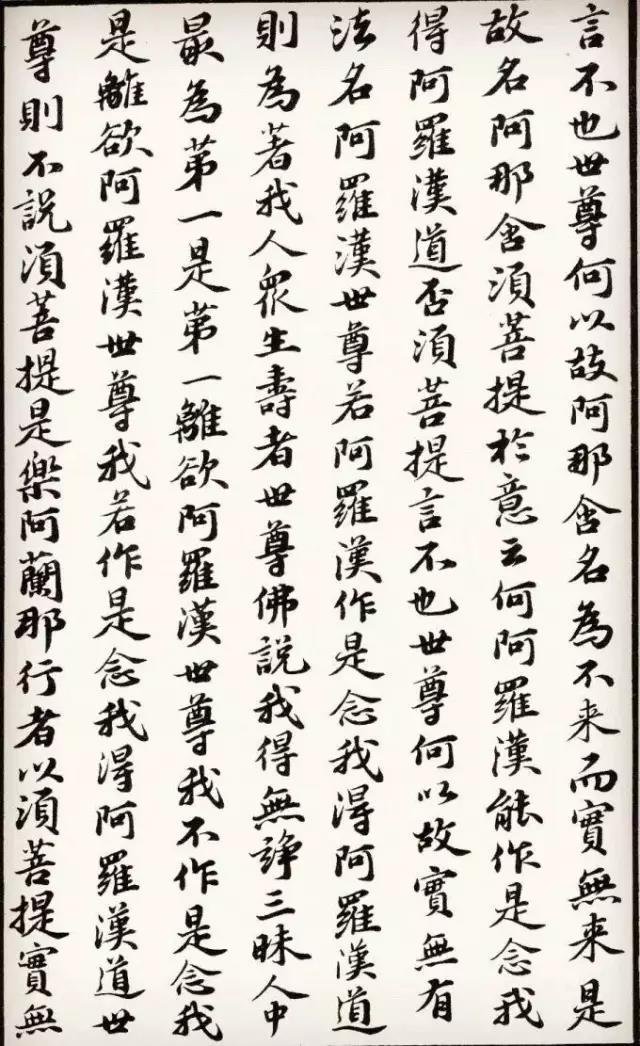 言不也世尊何以故阿那含名為不来而實無来是
故名阿那含須菩提於意云何阿羅漢能作是念我
得阿羅漢道否須菩提言不也世尊何以故實無有
法名阿羅漢世尊若阿羅漢作是念我得阿羅漢道
則為著我人衆生壽者世尊佛說我得無諍三昧人中
最為第一是第一離欲阿羅漢世尊我不作是念我
是離欲阿羅漢世尊我若作是念我得阿羅漢道世
尊則不說須菩提是樂阿蘭那行者以須菩提實無